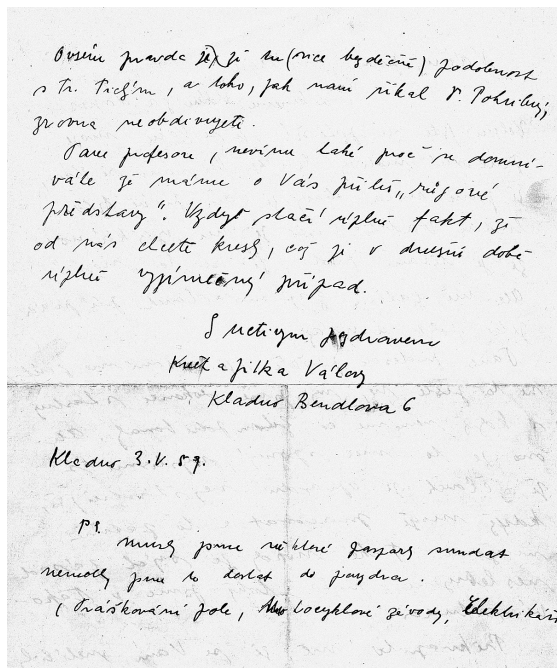 Ovšem pravda je, že tu (sice bezděčně) podobnost
s Fr. Tichým, a toho, jak nám říkal P. Pohribný,
zrovna neobdivujete.
Pane profesore, nevíme také proč se domní-
váte že máme o Vás příliš „růžové
představy". Vždyť stačí úplně fakt, že
od nás chcete kresby, což je v dnešní době
úplně vyjímečný případ.
S uctivým pozdravem
Květa a Jitka Válovy
Kladno Bendlova 6
Kladno 3. V. 59.
PS.
museli jsme některé sundat
nemohly jsme to dostat do
(Práškování pole, Motocyklové závody, Elektrikáři